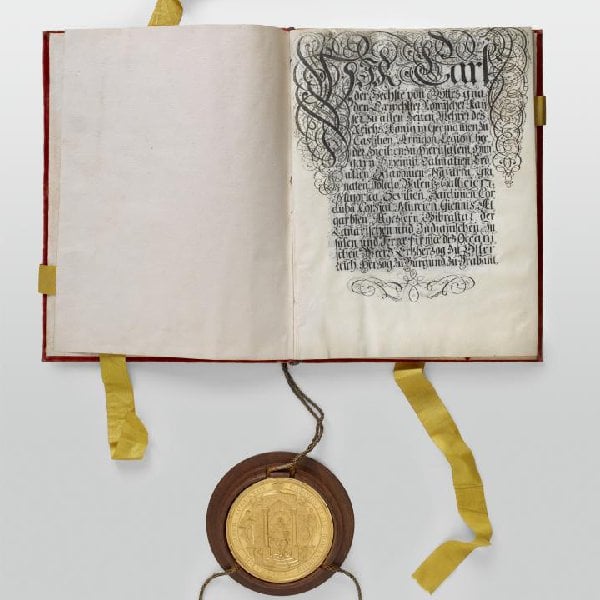 Wir Carl
der Sechste von Gottes gna
den Erwehlter Römischer Kaÿ
ser zu allen Zeiten Mehrer des
Reichs, König in Germanien, zu
Castilien, Arragon, Legion, bey
der Sicilien, zu Hierusalem, Hun
garn, Böheimb, Dalmatien, Cro
atien, Sclavonien, Navarra, Gra
naten, Toledo, Valenz, Gallicien,
Majorica, Sevilien, Sardinien, Cor
duba, Corsica, Murcien, Giennis, Al
garbien, Algezern, Gibraltar, der
Canarischen und Indianischen In
sulen und Terrae firmae des Oceani
schen Meers, Ertzherzog zu Öster
reich, Herzog zu Burgund, zu Braband,